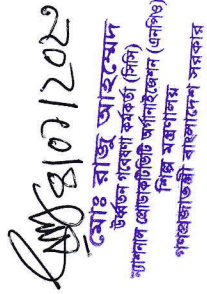 মোঃ রাজু আহম্মেদ
উর্দ্ধতন গবেষণা কর্মকর্তা (সিসি)
ন্যাশনাল প্রোডাকটিভিটি অর্গানাইজেশন (এনপিও)
শিল্প মন্ত্রণালয়
গণপ্রজাতন্ত্রী বাংলাদেশ সরকার